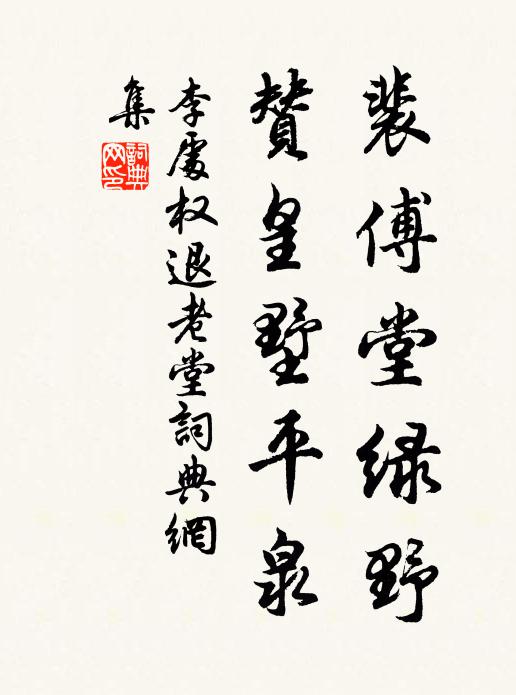 裴傅堂绿野
赞皇墅平泉
李處权退老堂詞典網
集
詞典网印